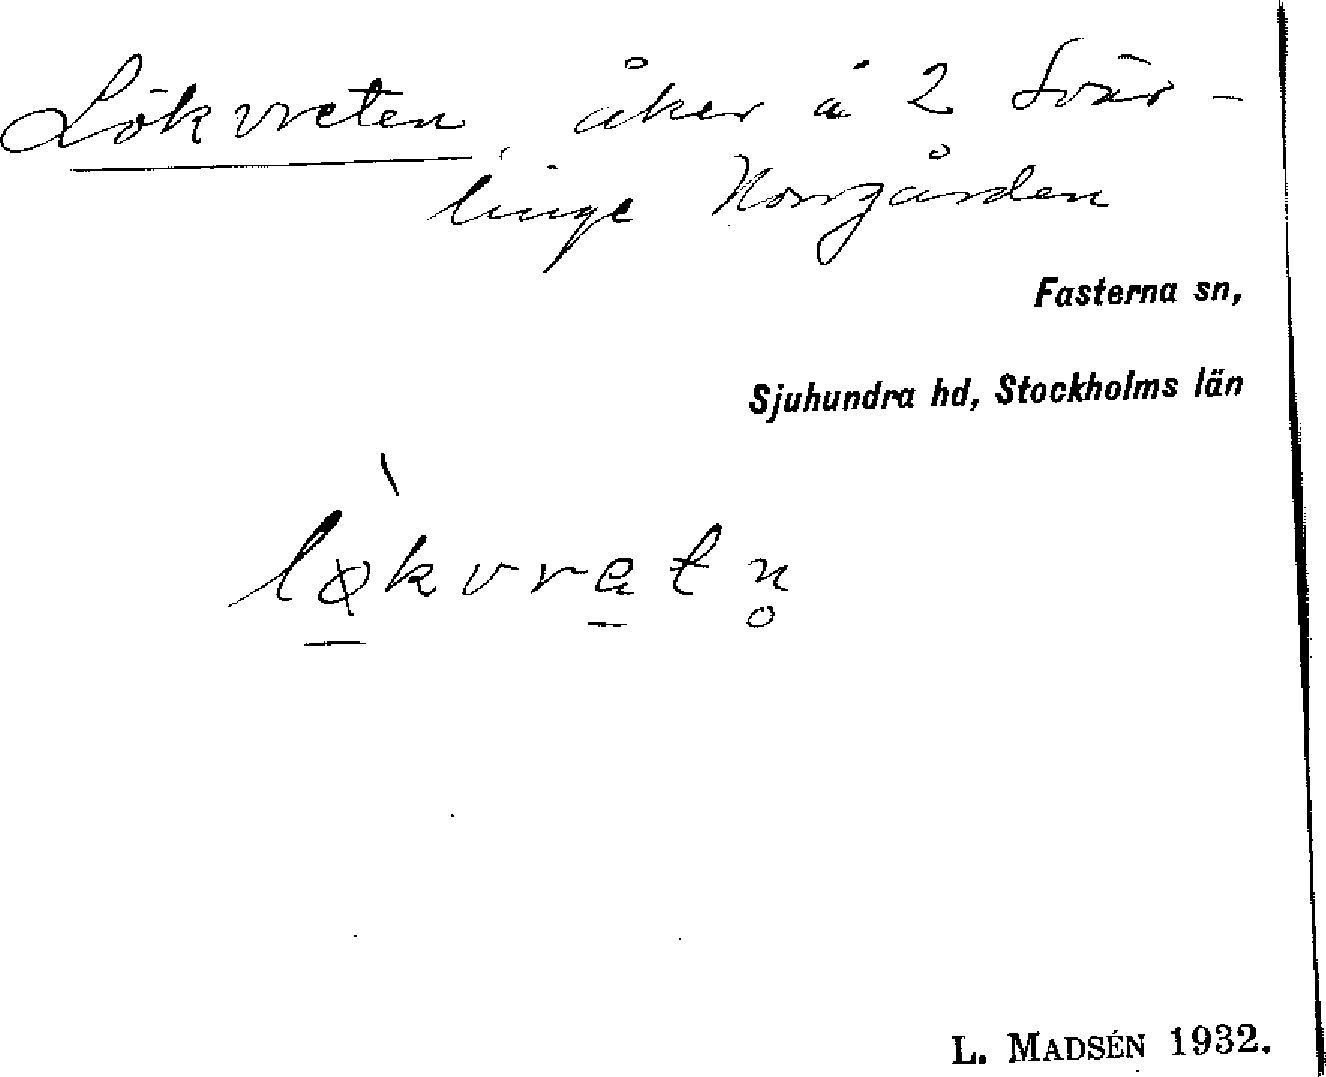 Lökvreten, åker å 2 Svär-
linge Norrgården
Fasterna sn,
Sjuhundra hd, Stockholms län
lø̱̀kvra̱tn̥
L. MADSÉN 1932.